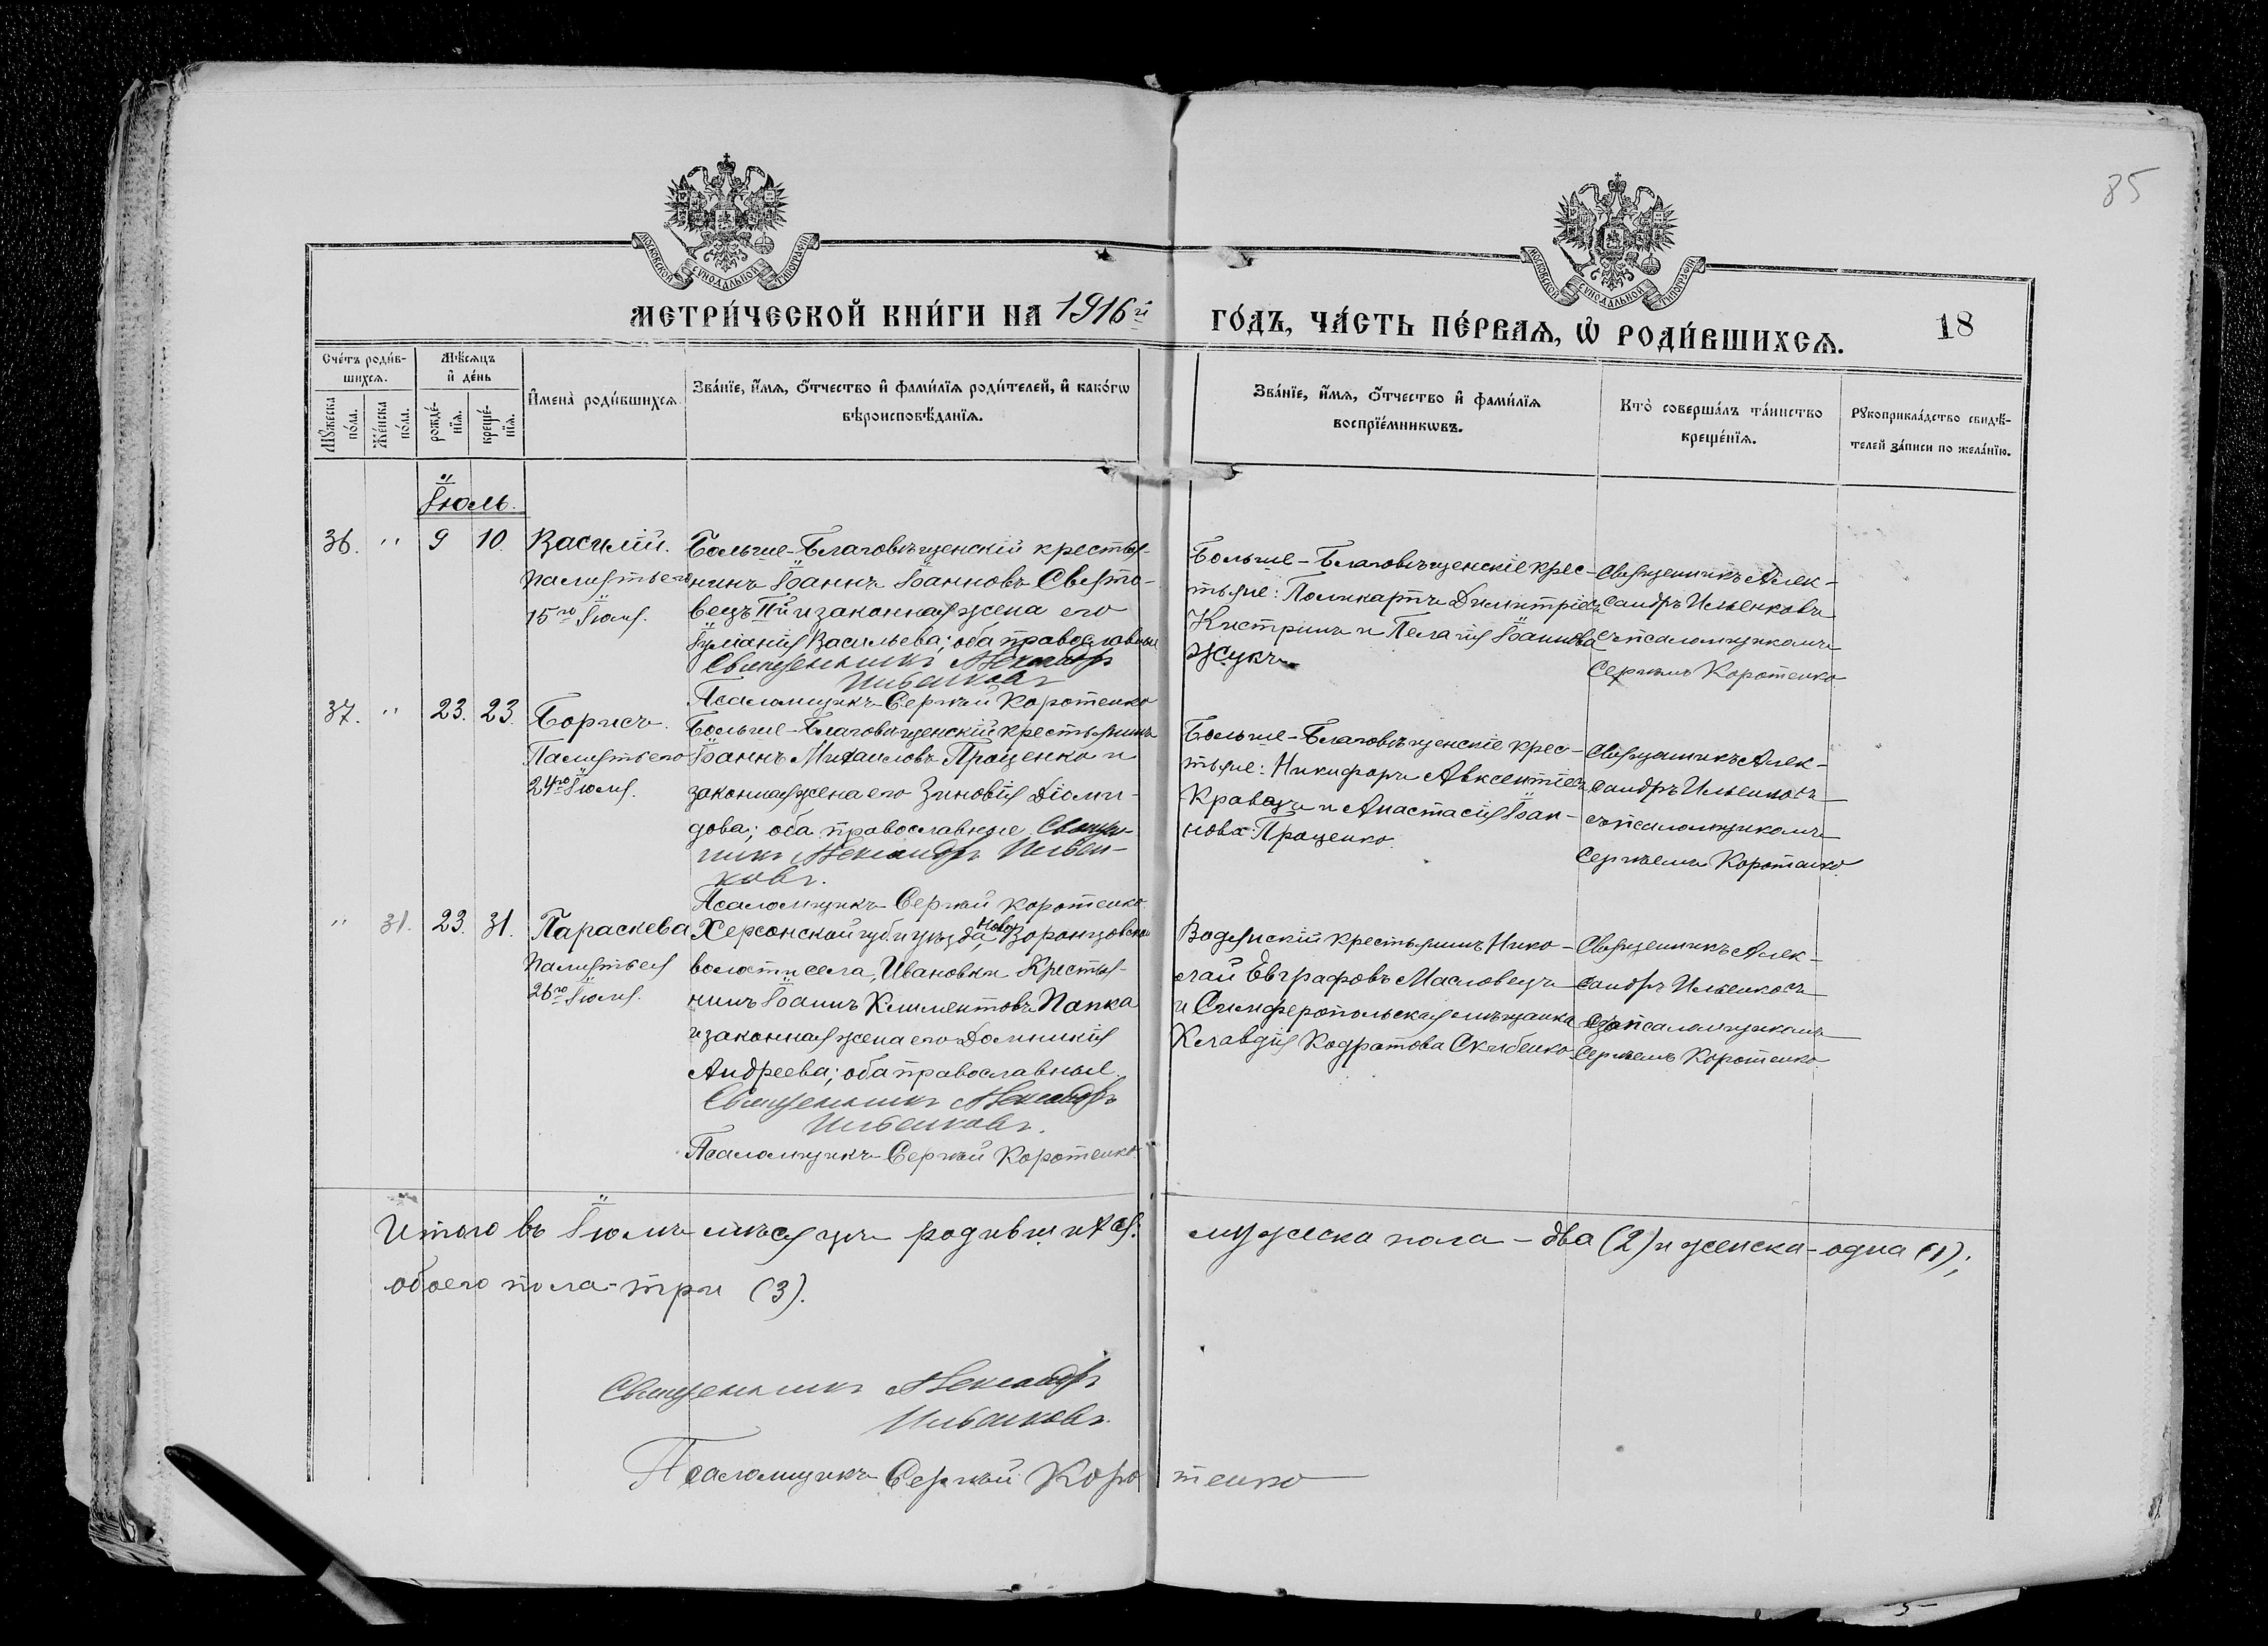 85
МОСКОВСКОЙ СѴНОДАЛЬНОЙ ТИПОГРАФІИ
МОСКОВСКОЙ СѴНОДАЛЬНОЙ ТИПОГРАФІИ
МЕТРИ́ЧЕСКОЙ КНИ́ГИ НА 1916й ГО́ДЪ, ЧА́СТЬ ПЕ́РВАѦ, Ѡ҆ РОДИ́ВШИХСѦ.
18
Сче́тъ роди́в-
шихсѧ.
Мꙋ́жеска по́ла.
Же́нска по́ла.
Мѣ́сѧцъ
и҆ де́нь
рожде́-
нїѧ.
креще́-
нїѧ.
И҆мена̀ роди́вшихсѧ.
Зва́нїе, и҆́мѧ, ѻ҆́тчество и҆ фами́лїѧ роди́телей, и҆ како́гѡ
вѣроисповѣ́данїѧ.
Зва́нїе, и҆́мѧ, ѻ҆́тчество и҆ фами́лїѧ
воспрїе́мникѡвъ.
Кто̀ соверша́лъ та́инство
креще́нїѧ.
Рꙋкоприкла́дство свидѣ́-
телей за́писи по жела́нїю.
Іюль.
36. " 9 10. Василій.
память его
15го Іюля.
Больше-Благовѣщенскій крестья-
нинъ Іоаннъ Іоанновъ Свято-
вецъ IIй и законная жена его
Іуліанія Васильева; оба православные
Священникъ Александръ
Ильенковъ
Псаломщикъ Сергѣй Коротенко
Больше-Благовѣщенскіе крес-
тьяне: Поликарпъ Димитріевъ
Кистринъ и Пелагія Іоаннова
Жукъ
Священникъ Алек-
сандръ Ильенковъ
съ псаломщикомъ
Сергѣемъ Коротенко
37. " 23. 23. Борисъ.
Память его
24го Іюля.
Больше-Благовѣщенскій крестьянинъ
Іоаннъ Михаиловъ Проценко и
законная жена его Зиновія Діоми-
дова; оба православные. Священ-
никъ Александръ Ильен-
ковъ.
Псаломщикъ Сергѣй Коротенко.
Больше-Благовѣщенскіе крес-
тьяне: Никифоръ Авксентіевъ
Кравецъ и Анастасія Іоан-
нова Проценко.
Священникъ Алек-
сандръ Ильенковъ
съ псаломщикомъ
Сергѣемъ Коротенко.
" 31. 23. 31. Параскева
память ея
26го Іюля.
Херсонской губ. и уѣзда Ново Воронцовской
волости села, Ивановки Крестья-
нинъ Іоаннъ Климентовъ Папка
и законная жена его Домникія
Андреева; оба православные.
Священникъ Александръ
Ильенковъ.
Псаломщикъ Сергѣй Коротенко.
Водянскій крестьянинъ Нико-
лай Евграфовъ Масловецъ
и Симферопольская мѣщанка
Клавдія Кодратова Скибенко
Священникъ Алек-
сандръ Ильенковъ
псаломщикомъ
Сергѣемъ Коротенко.
Итого въ Іюлѣ мѣсяцѣ родившихся: мужеска пола - два (2) и женска - одна (1);
обоего пола - три (3).
Священникъ Александръ
Ильенковъ.
Псаломщикъ Сергѣй Коротенко